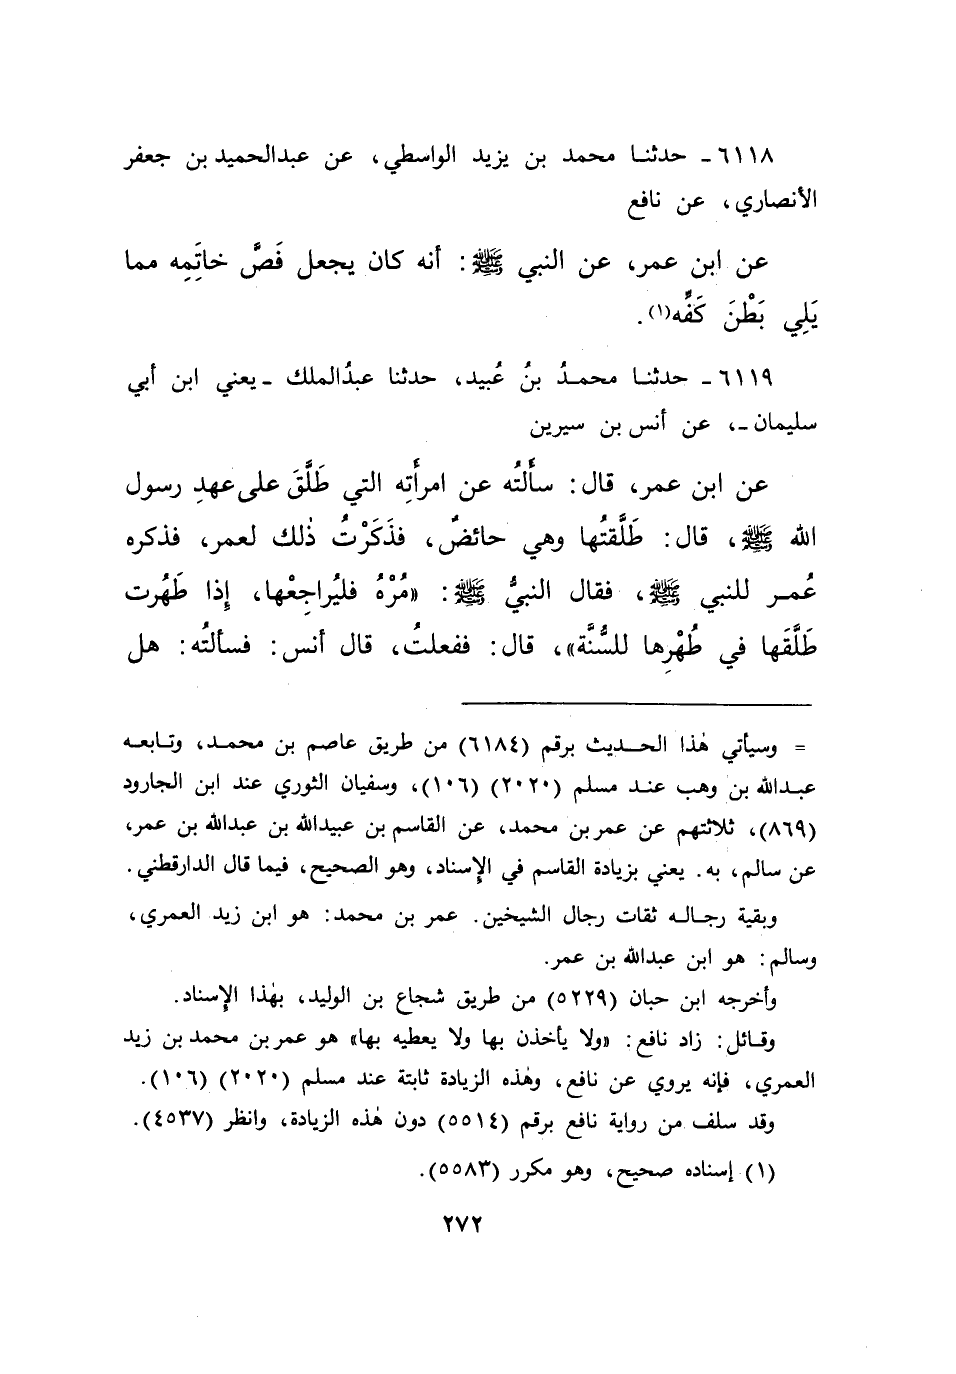 ٦١١٨ - حدثنا محمد بن يزيد الواسطي، عن عبدالحميد بن جعفر
الأنصاري، عن نافع
عن ابن عمر، عن النبي ﷺ: أنه كان يجعل فَصَّ خاتَمِه مما
يَلِي بَطْنَ كَفِّه(١).
٦١١٩ - حدثنا محمدُ بنُ عُبيد، حدثنا عبدُالملك - يعني ابن أبي
سليمان -، عن أنس بن سيرين
عن ابن عمر، قال: سأَلْتُه عن امرأَتِه التي طَلَّقَ على عهدِ رسول
الله ﷺ، قال: طَلَّقتُها وهي حائضٌ، فذَكَرْتُ ذٰلك لعمر، فذكره
عُمر للنبي ﷺ، فقال النبيُّ ﷺ: «مُرْهُ فليُراجِعْها، إِذا طَهُرت
طَلَّقَها في طُهْرِها للسُّنَّة»، قال: ففعلتُ، قال أنس: فسألتُه: هل
= وسيأتي هٰذا الحديث برقم (٦١٨٤) من طريق عاصم بن محمد، وتابعه
عبدالله بن وهب عند مسلم (٢٠٢٠) (١٠٦)، وسفيان الثوري عند ابن الجارود
(٨٦٩)، ثلاثتهم عن عمر بن محمد، عن القاسم بن عبيدالله بن عبدالله بن عمر،
عن سالم، به. يعني بزيادة القاسم في الإسناد، وهو الصحيح، فيما قال الدارقطني.
وبقية رجاله ثقات رجال الشيخين. عمر بن محمد: هو ابن زيد العمري،
وسالم: هو ابن عبدالله بن عمر.
وأخرجه ابن حبان (٥٢٢٩) من طريق شجاع بن الوليد، بهٰذا الإسناد.
وقائل: زاد نافع: «ولا يأخذن بها ولا يعطيه بها» هو عمر بن محمد بن زيد
العمري، فإنه يروي عن نافع، وهٰذه الزيادة ثابتة عند مسلم (٢٠٢٠) (١٠٦).
وقد سلف من رواية نافع برقم (٥٥١٤) دون هٰذه الزيادة، وانظر (٤٥٣٧).
(١) إسناده صحيح، وهو مكرر (٥٥٨٣).
٢٧٢